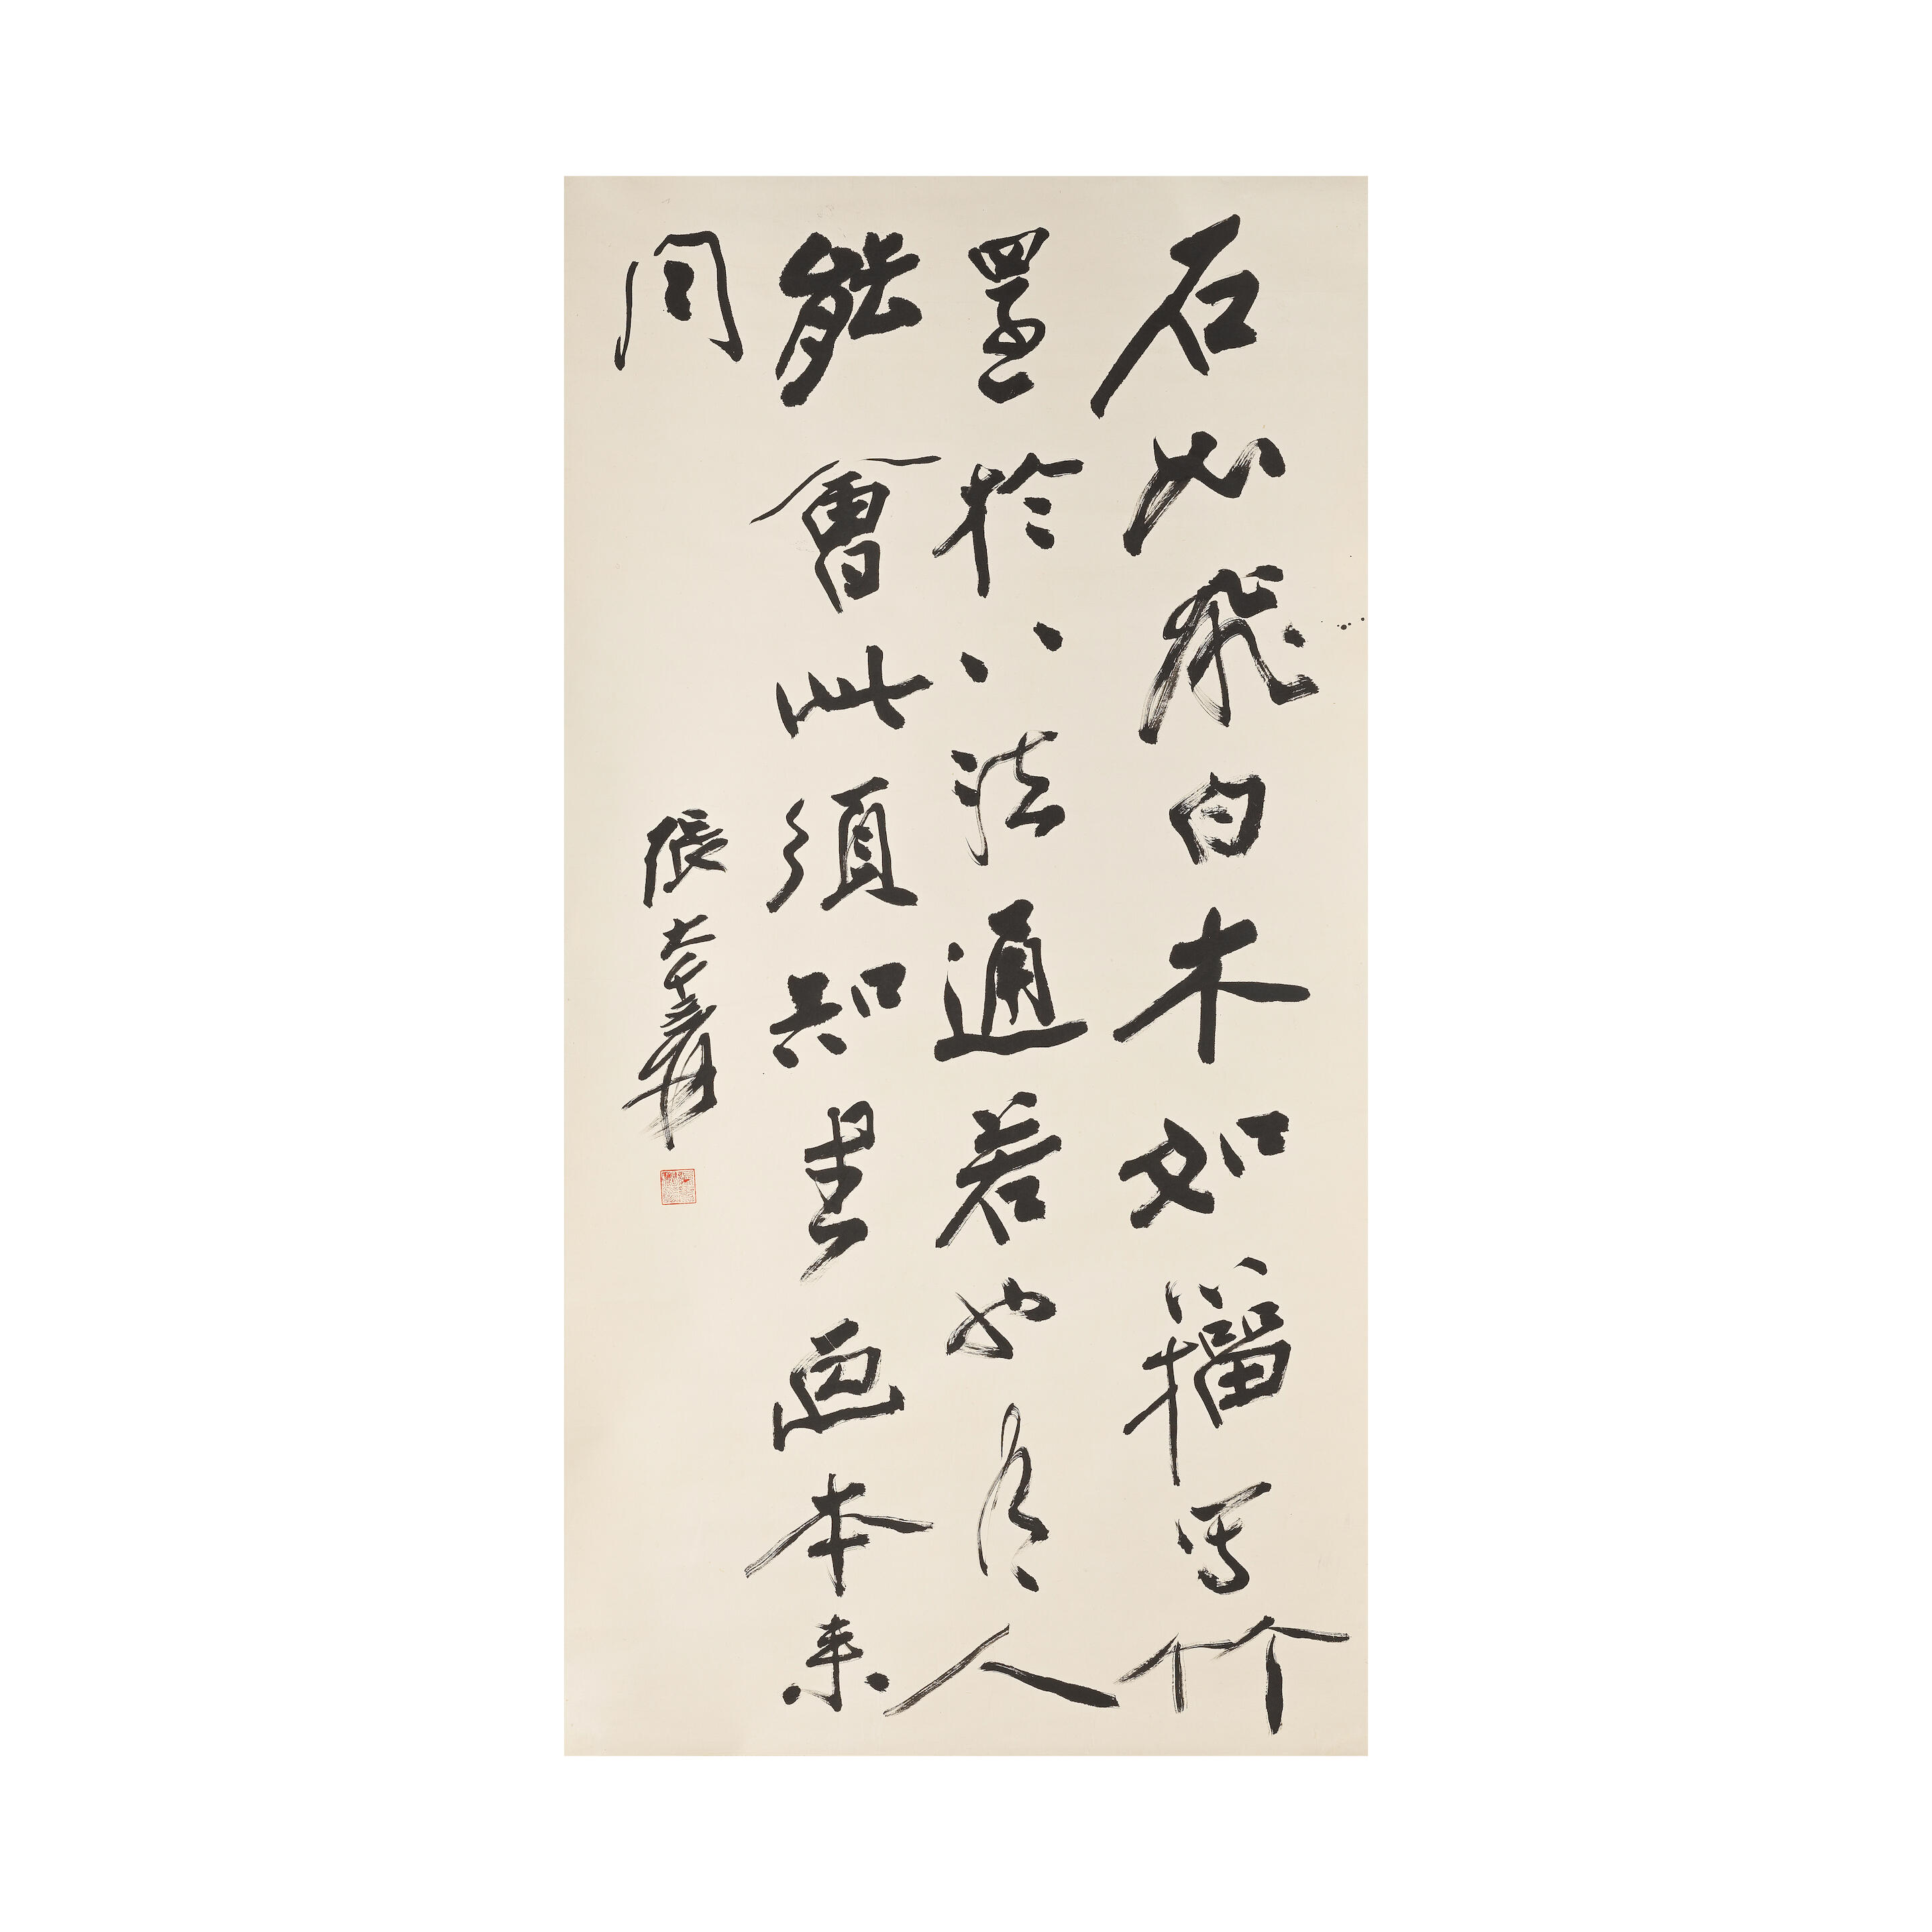 石如飛白木如籀寫竹
還於八法通若也有人
能會此須知書畫本來
同
張大千爰